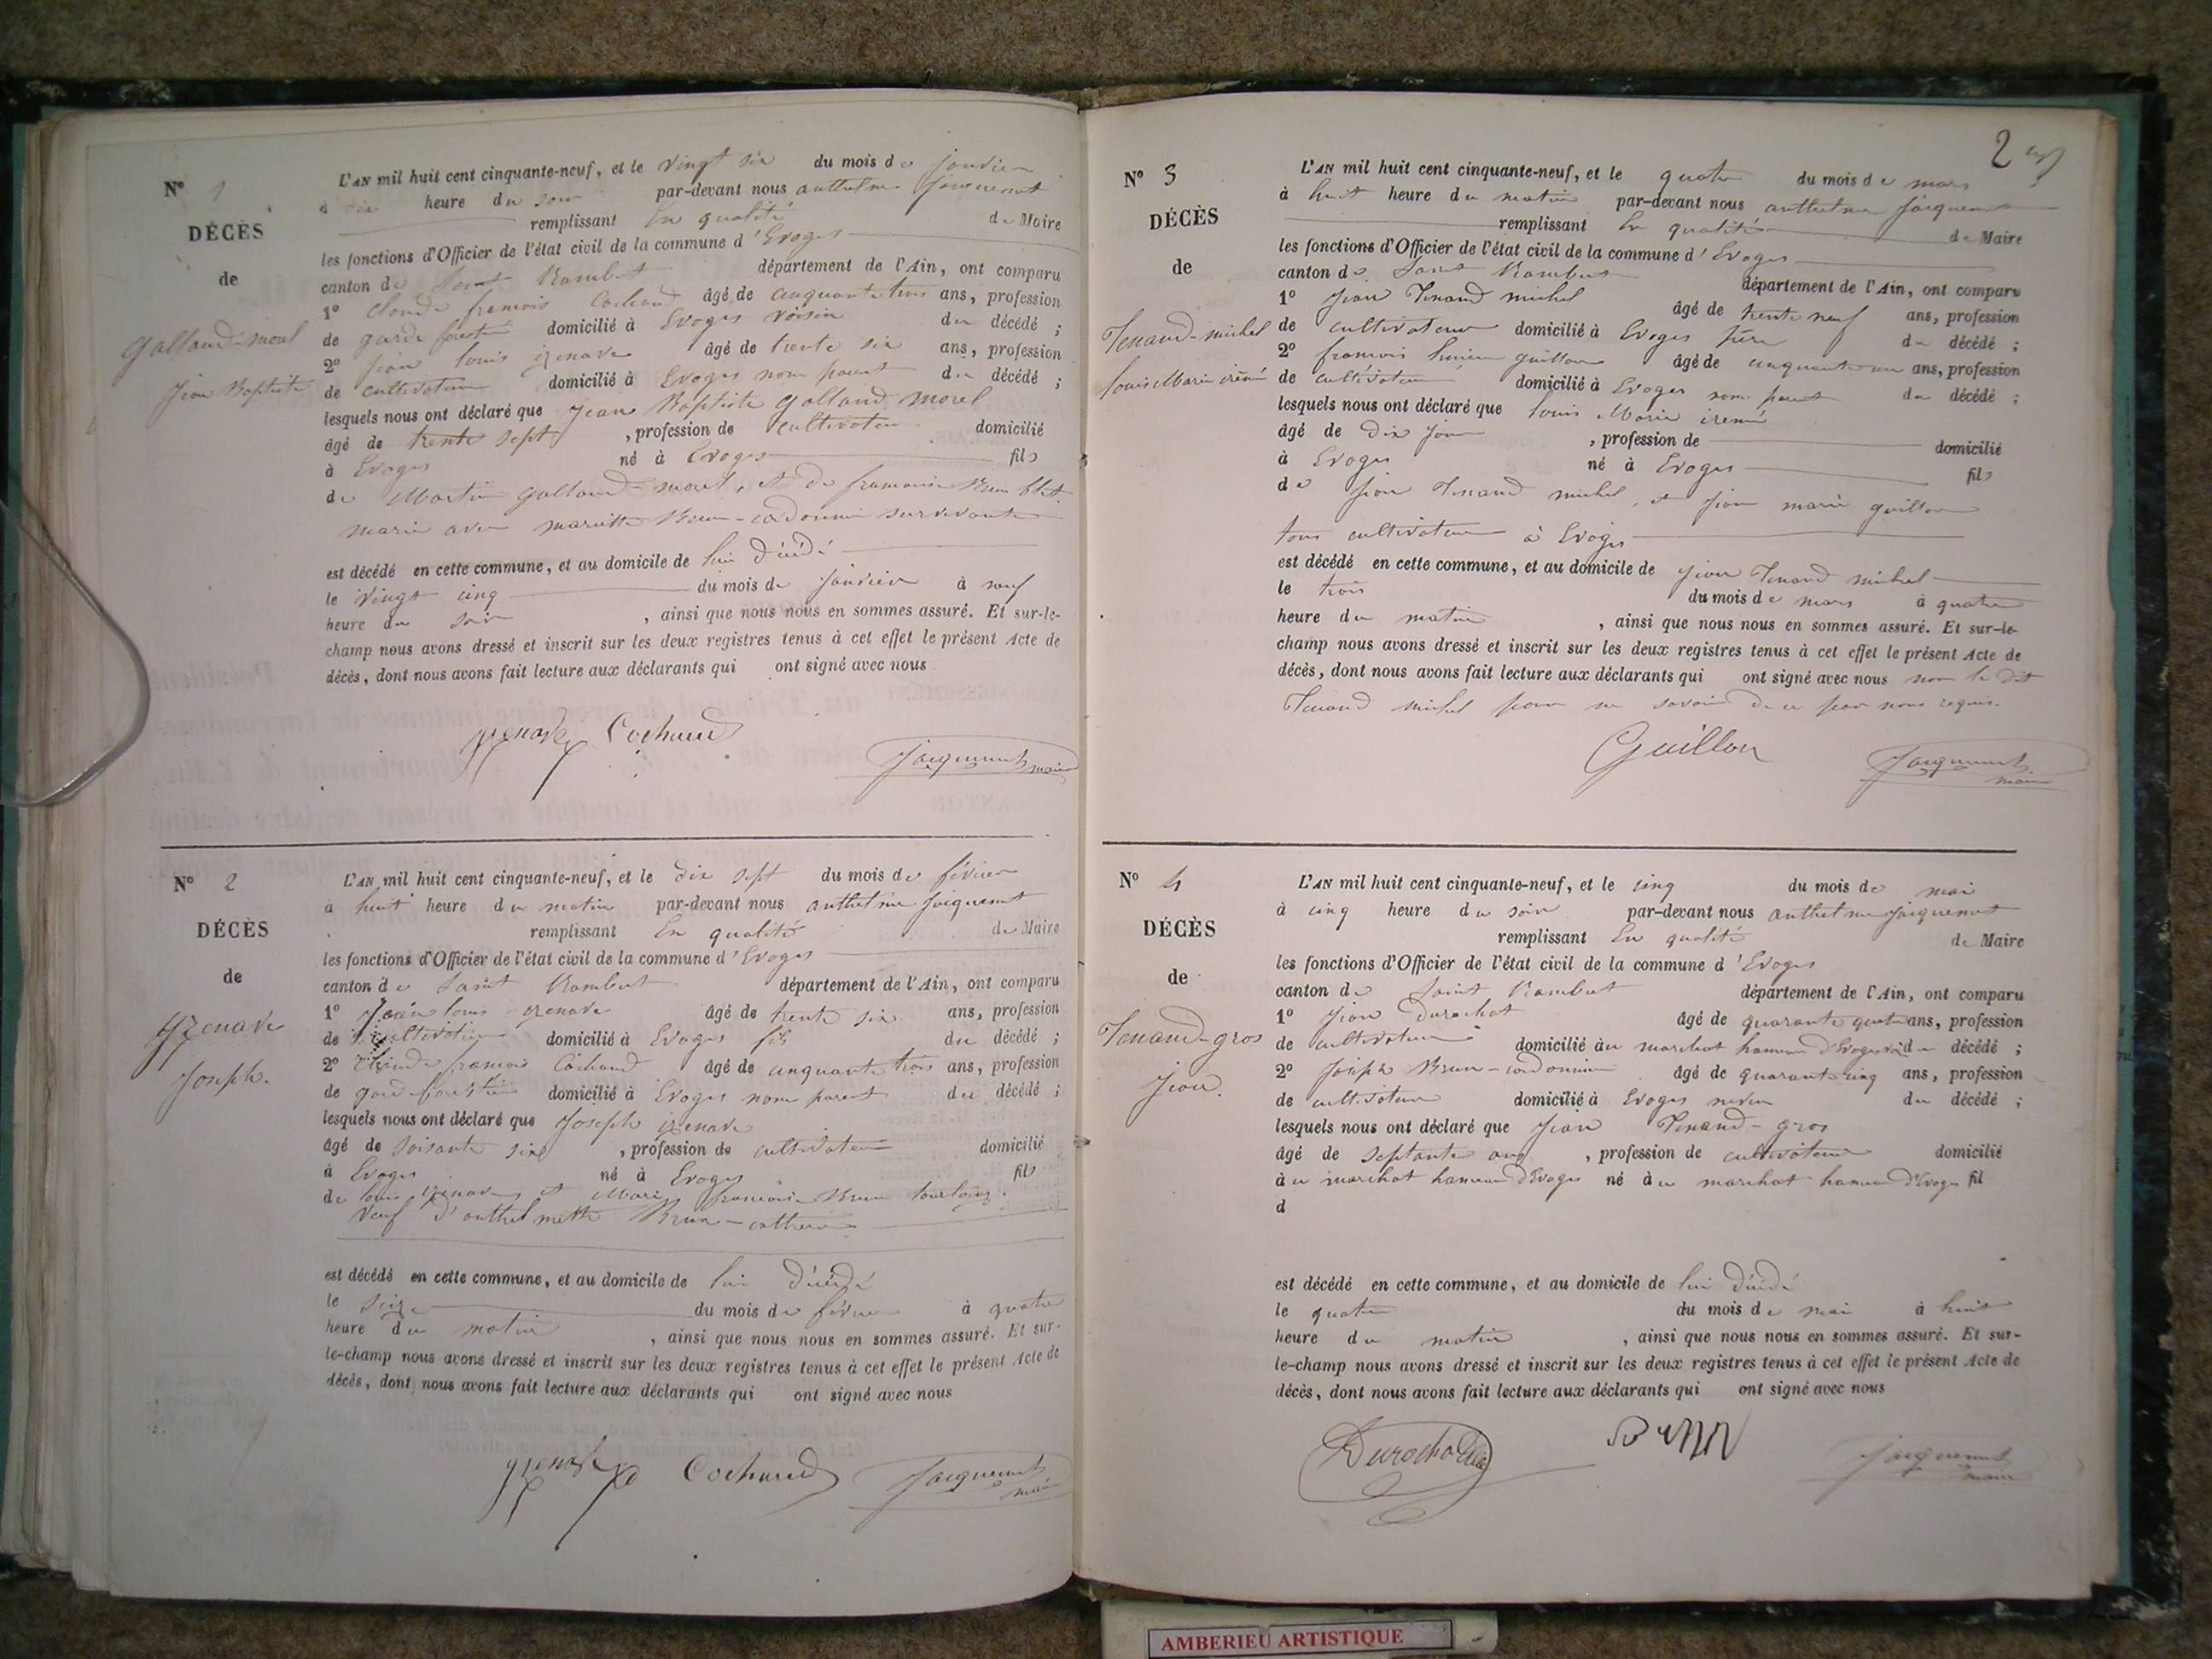 N° 1
DÉCÈS
de
Galland-morel
Jean Baptiste
L'AN mil huit cent cinquante-neuf, et le vingt six du mois de janvier
à dix heure du soir par-devant nous anthelme Jacquemet
remplissant en qualité de Maire
les fonctions d'Officier de l'état civil de la commune d'Evoges
canton de Saint Rambert département de l'Ain, ont comparu
1° Claude francois Cochand âgé de cinquante trois ans, profession
de garde forestier domicilié à Evoges voisin du décédé ;
2° jean louis grenave âgé de trente six ans, profession
de cultivateur domicilié à Evoges non parent du décédé ;
lesquels nous ont déclaré que Jean Baptiste galland morel
âgé de trente sept , profession de cultivateur domicilié
à Evoges né à Evoges fils
de Martin galland-morel, et de francoise Brun
marié avec mariette Brun-cordonnier survivante
est décédé en cette commune, et au domicile de lui décédé
le vingt cinq du mois de janvier à neuf
heure du soir , ainsi que nous nous en sommes assuré. Et sur-le-
champ nous avons dressé et inscrit sur les deux registres tenus à cet effet le présent Acte de
décès, dont nous avons fait lecture aux déclarants qui ont signé avec nous
grenave Cochand Jacquemet maire
N° 2
DÉCÈS
de
grenave
Joseph.
L'AN mil huit cent cinquante-neuf, et le dix sept du mois de février
à huit heure du matin par-devant nous anthelme jacquemet
remplissant en qualité de Maire
les fonctions d'Officier de l'état civil de la commune d'Evoges
canton de Saint Rambert département de l'Ain, ont comparu
1° Jean louis grenave âgé de trente six ans, profession
de cultivateur domicilié à Evoges fils du décédé ;
2° Claude francois Cochand âgé de cinquante trois ans, profession
de gard forestier domicilié à Evoges non parent du décédé ;
lesquels nous ont déclaré que Joseph grenave
âgé de soisante six , profession de cultivateur domicilié
à Evoges né à Evoges fils
de louis grenave et Marie francoise Brun
veuf d'anthelmette Brun-
est décédé en cette commune, et au domicile de lui décédé
le seize du mois de février à quatre
heure du matin , ainsi que nous nous en sommes assuré. Et sur-
le-champ nous avons dressé et inscrit sur les deux registres tenus à cet effet le présent Acte de
décès, dont nous avons fait lecture aux déclarants qui ont signé avec nous
grenave Cochand Jacquemet maire
2
N° 3
DÉCÈS
de
Tenand-michel
louis Marie iréné
L'AN mil huit cent cinquante-neuf, et le quatre du mois de mars
à huit heure du matin par-devant nous anthelme Jacquemet
remplissant en qualité de Maire
les fonctions d'Officier de l'état civil de la commune d'Evoges
canton de Saint Rambert département de l'Ain, ont comparu
1° Jean Tenand michel âgé de trente neuf ans, profession
de cultivateur domicilié à Evoges père du décédé ;
2° francois guillon âgé de cinquante un ans, profession
de cultivateur domicilié à Evoges non parent du décédé ;
lesquels nous ont déclaré que louis Marie iréné
âgé de dix jour , profession de domicilié
à Evoges né à Evoges fils
de Jean Tenand michel, et Jean marie guillon
tous cultivateur à Evoges
est décédé en cette commune, et au domicile de Jean Tenand michel
le trois du mois de mars à quatre
heure du matin , ainsi que nous nous en sommes assuré. Et sur-le-
champ nous avons dressé et inscrit sur les deux registres tenus à cet effet le présent Acte de
décès, dont nous avons fait lecture aux déclarants qui ont signé avec nous non le dit
Tenand michel pour ne savoir de ce par nous requis.
Guillon Jacquemet maire
N° 4
DÉCÈS
de
Tenand-gros
Jean.
L'AN mil huit cent cinquante-neuf, et le cinq du mois de mai
à cinq heure du soir par-devant nous anthelme jacquemet
remplissant en qualité de Maire
les fonctions d'Officier de l'état civil de la commune d'Evoges
canton de Saint Rambert département de l'Ain, ont comparu
1° Jean Durochat âgé de quarante quatre ans, profession
de cultivateur domicilié àu marchat hameau d'Evoges du décédé ;
2° Joseph Brun-cordonnier âgé de quarante cinq ans, profession
de cultivateur domicilié à Evoges neveu du décédé ;
lesquels nous ont déclaré que Jean Tenand-gros
âgé de septante ans , profession de cultivateur domicilié
àu marchat hameau d'Evoges né àu marchat hameau d'Evoges fil
d
est décédé en cette commune, et au domicile de lui décédé
le quatre du mois de mai à huit
heure du matin , ainsi que nous nous en sommes assuré. Et sur-
le-champ nous avons dressé et inscrit sur les deux registres tenus à cet effet le présent Acte de
décès, dont nous avons fait lecture aux déclarants qui ont signé avec nous
Durochat Brun Jacquemet maire
AMBERIEU ARTISTIQUE